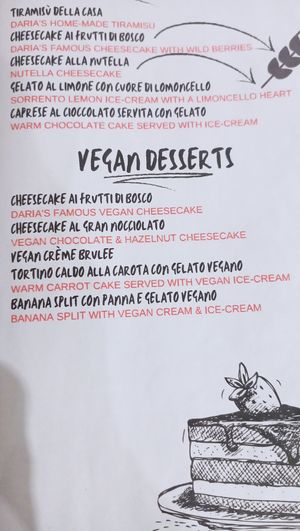 TIRAMISÙ DELLA CASA
DARIA'S HOME-MADE TIRAMISU
CHEESECAKE AI FRUTTI DI BOSCO
DARIA'S FAMOUS CHEESECAKE WITH WILD BERRIES
CHEESECAKE ALLA NUTELLA
NUTELLA CHEESECAKE
GELATO AL LIMONE CON CUORE DI LOMONCELLO
SORRENTO LEMON ICE-CREAM WITH A LIMONCELLO HEART
CAPRESE AL CIOCCOLATO SERVITA CON GELATO
WARM CHOCOLATE CAKE SERVED WITH ICE-CREAM
VEGAN DESSERTS
CHEESECAKE AI FRUTTI DI BOSCO
DARIA'S FAMOUS VEGAN CHEESECAKE
CHEESECAKE AL GRAN NOCCIOLATO
VEGAN CHOCOLATE & HAZELNUT CHEESECAKE
VEGAN CRÈME BRULEE
TORTINO CALDO ALLA CAROTA CON GELATO VEGANO
WARM CARROT CAKE SERVED WITH VEGAN ICE-CREAM
BANANA SPLIT CON PANNA E GELATO VEGANO
BANANA SPLIT WITH VEGAN CREAM & ICE-CREAM